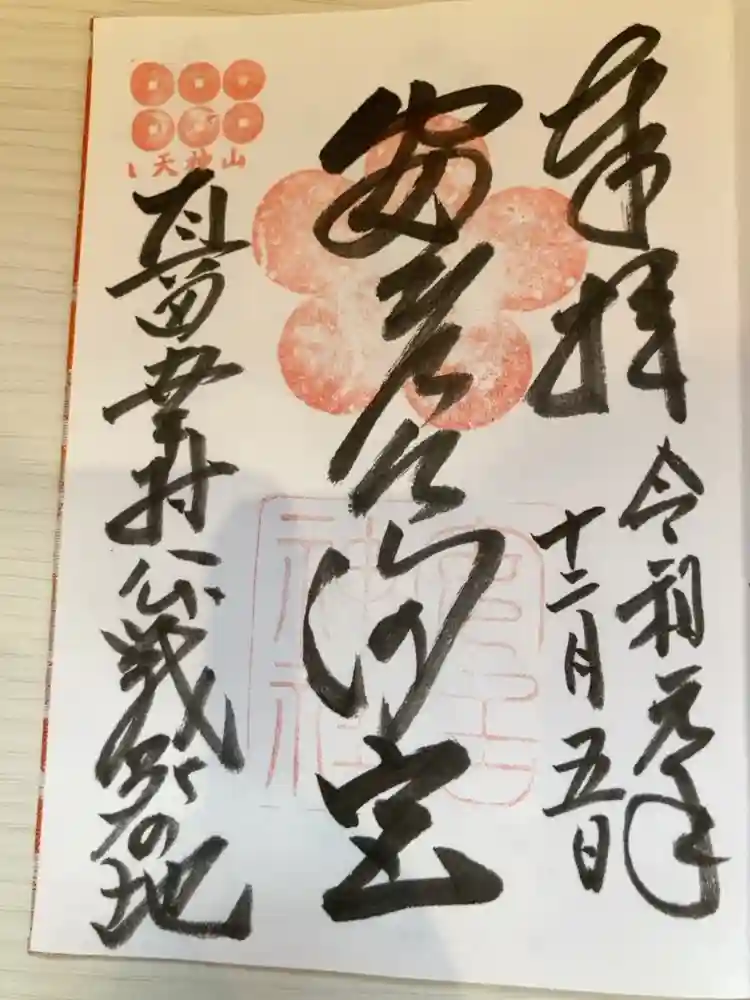 奉拝
令和元年
十二月五日
安居天満宮
真田幸村公戦跡の地
天神山
神社